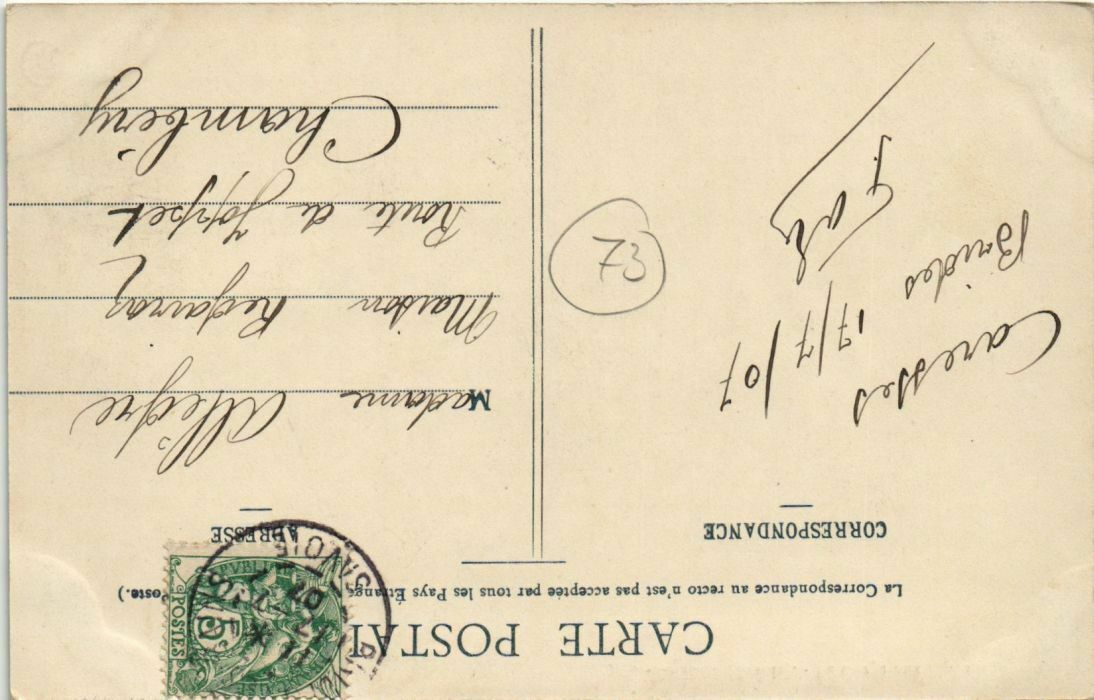 CARTE POSTAL
La Correspondance au recto n'est pas acceptée par tous les Pays Étrang
oste.)
CORRESPONDANCE
ADRESSE
Caresses
Brides
17/7/07
73
Madame Allègre
Maison
Route de Joppet
Chambéry
5
POSTES
SAVOIE
07